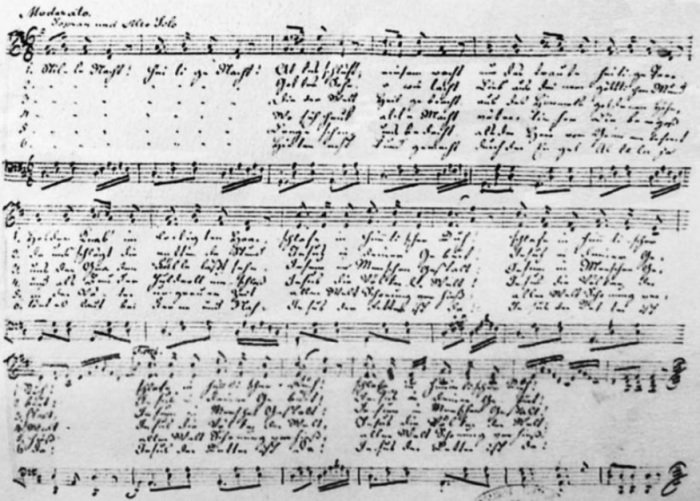 Moderato.
Sopran und Alto Solo
1. Stille Nacht! Heilige Nacht! Alles schläft; einsam wacht nur das traute heilige Paar.
2 Gottes Sohn! o wie lacht Lieb' aus deinem göttlichen Mund
3 Die der Welt Heil gebracht aus des Himmels goldenen Höhen
4 Wo sich heut alle Macht väterlicher Liebe ergoß
5 Lange schon uns bedacht als der Herr vom Grimme befreit
6 Hirten erst kund gemacht durch der Engel Alleluja
1. Holder Knab' im lockigten Haar; schlafe in himmlischer Ruh! schlafe in himmlischer
2. da uns schlägt die rettende Stund. Jesus in deiner Geburt! Jesus in deiner Ge-
3. uns der Gnaden Fülle läßt sehn Jesum in Menschengestalt! Jesum in Menschenge-
4. und als Bruder huldvoll umschloß Jesus die Völker der Welt! Jesus die Völker der
5. in der Väter urgrauer Zeit aller Welt Schonung verhieß! aller Welt Schonung ver-
6. laut bei Ferne und Nah: Jesus der Retter ist da! Jesus der Retter ist
1. Ruh! schlafe in himmlischer Ruh! schlafe in himmlischer Ruh!
2. burt! Jesus in deiner Geburt! Jesus in deiner Geburt!
3. stalt! Jesum in Menschengestalt! Jesum in Menschengestalt!
4. Welt! Jesus die Völker der Welt! Jesus die Völker der Welt!
5. hieß! aller Welt Schonung verhieß! aller Welt Schonung verhieß!
6. da! Jesus der Retter ist da! Jesus der Retter ist da!